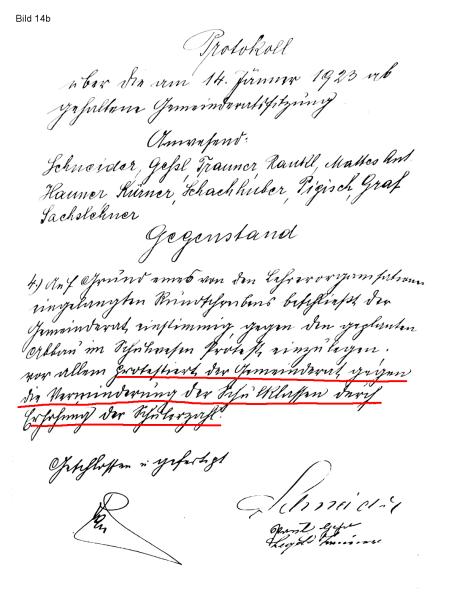 Bild 14b
Protokoll
über die am 14. Jänner 1923 ab
gehaltene Gemeinderatssitzung
Anwesend:
Schneider, Gehsl, Trauner, Mattes Ant
Hauner, Kürner, Schachhuber, Pigisch, Graf
Sachslehner
Gegenstand
4.) Auf Grund eines von den Lehrerorganisationen
eingelangten Rundschreibens beschließt der
Gemeinderat einstimmig gegen den geplanten
Abbau im Schulwesen Protest einzulegen,
vor allem protestiert der Gemeinderat gegen
die Verminderung der Schulklassen durch
Erhöhung der Schülerzahl.
Geschlossen u gefertigt
Schneider